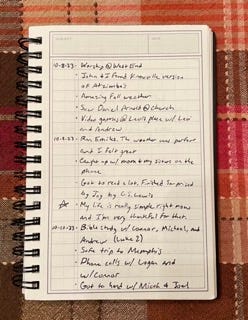 SUBJECT DATE
10-8-23 - Worship @ West End
- John & I found Knoxville version
of Atsimbo's
- Amazing Fall weather
- Saw Daniel Arnold @ church
- Video games @ Levi's place w/ Levi
and Andrew
10-9-23 - Ran 5 miles. The weather was perfect
and I felt great
- Caught up w/ mom & my sisters on the
phone
- Got to read a lot. Finished Surprised
by Joy by C.S. Lewis
☆ - My life is really simple right now
and I'm very thankful for that.
10-10-23 - Bible study w/ Connor, Michael, and
Andrew (Luke 2)
- Safe trip to Memphis
- Phone calls w/ Logan and
w/ Connor
- Got to hang w/ Micah & Joel